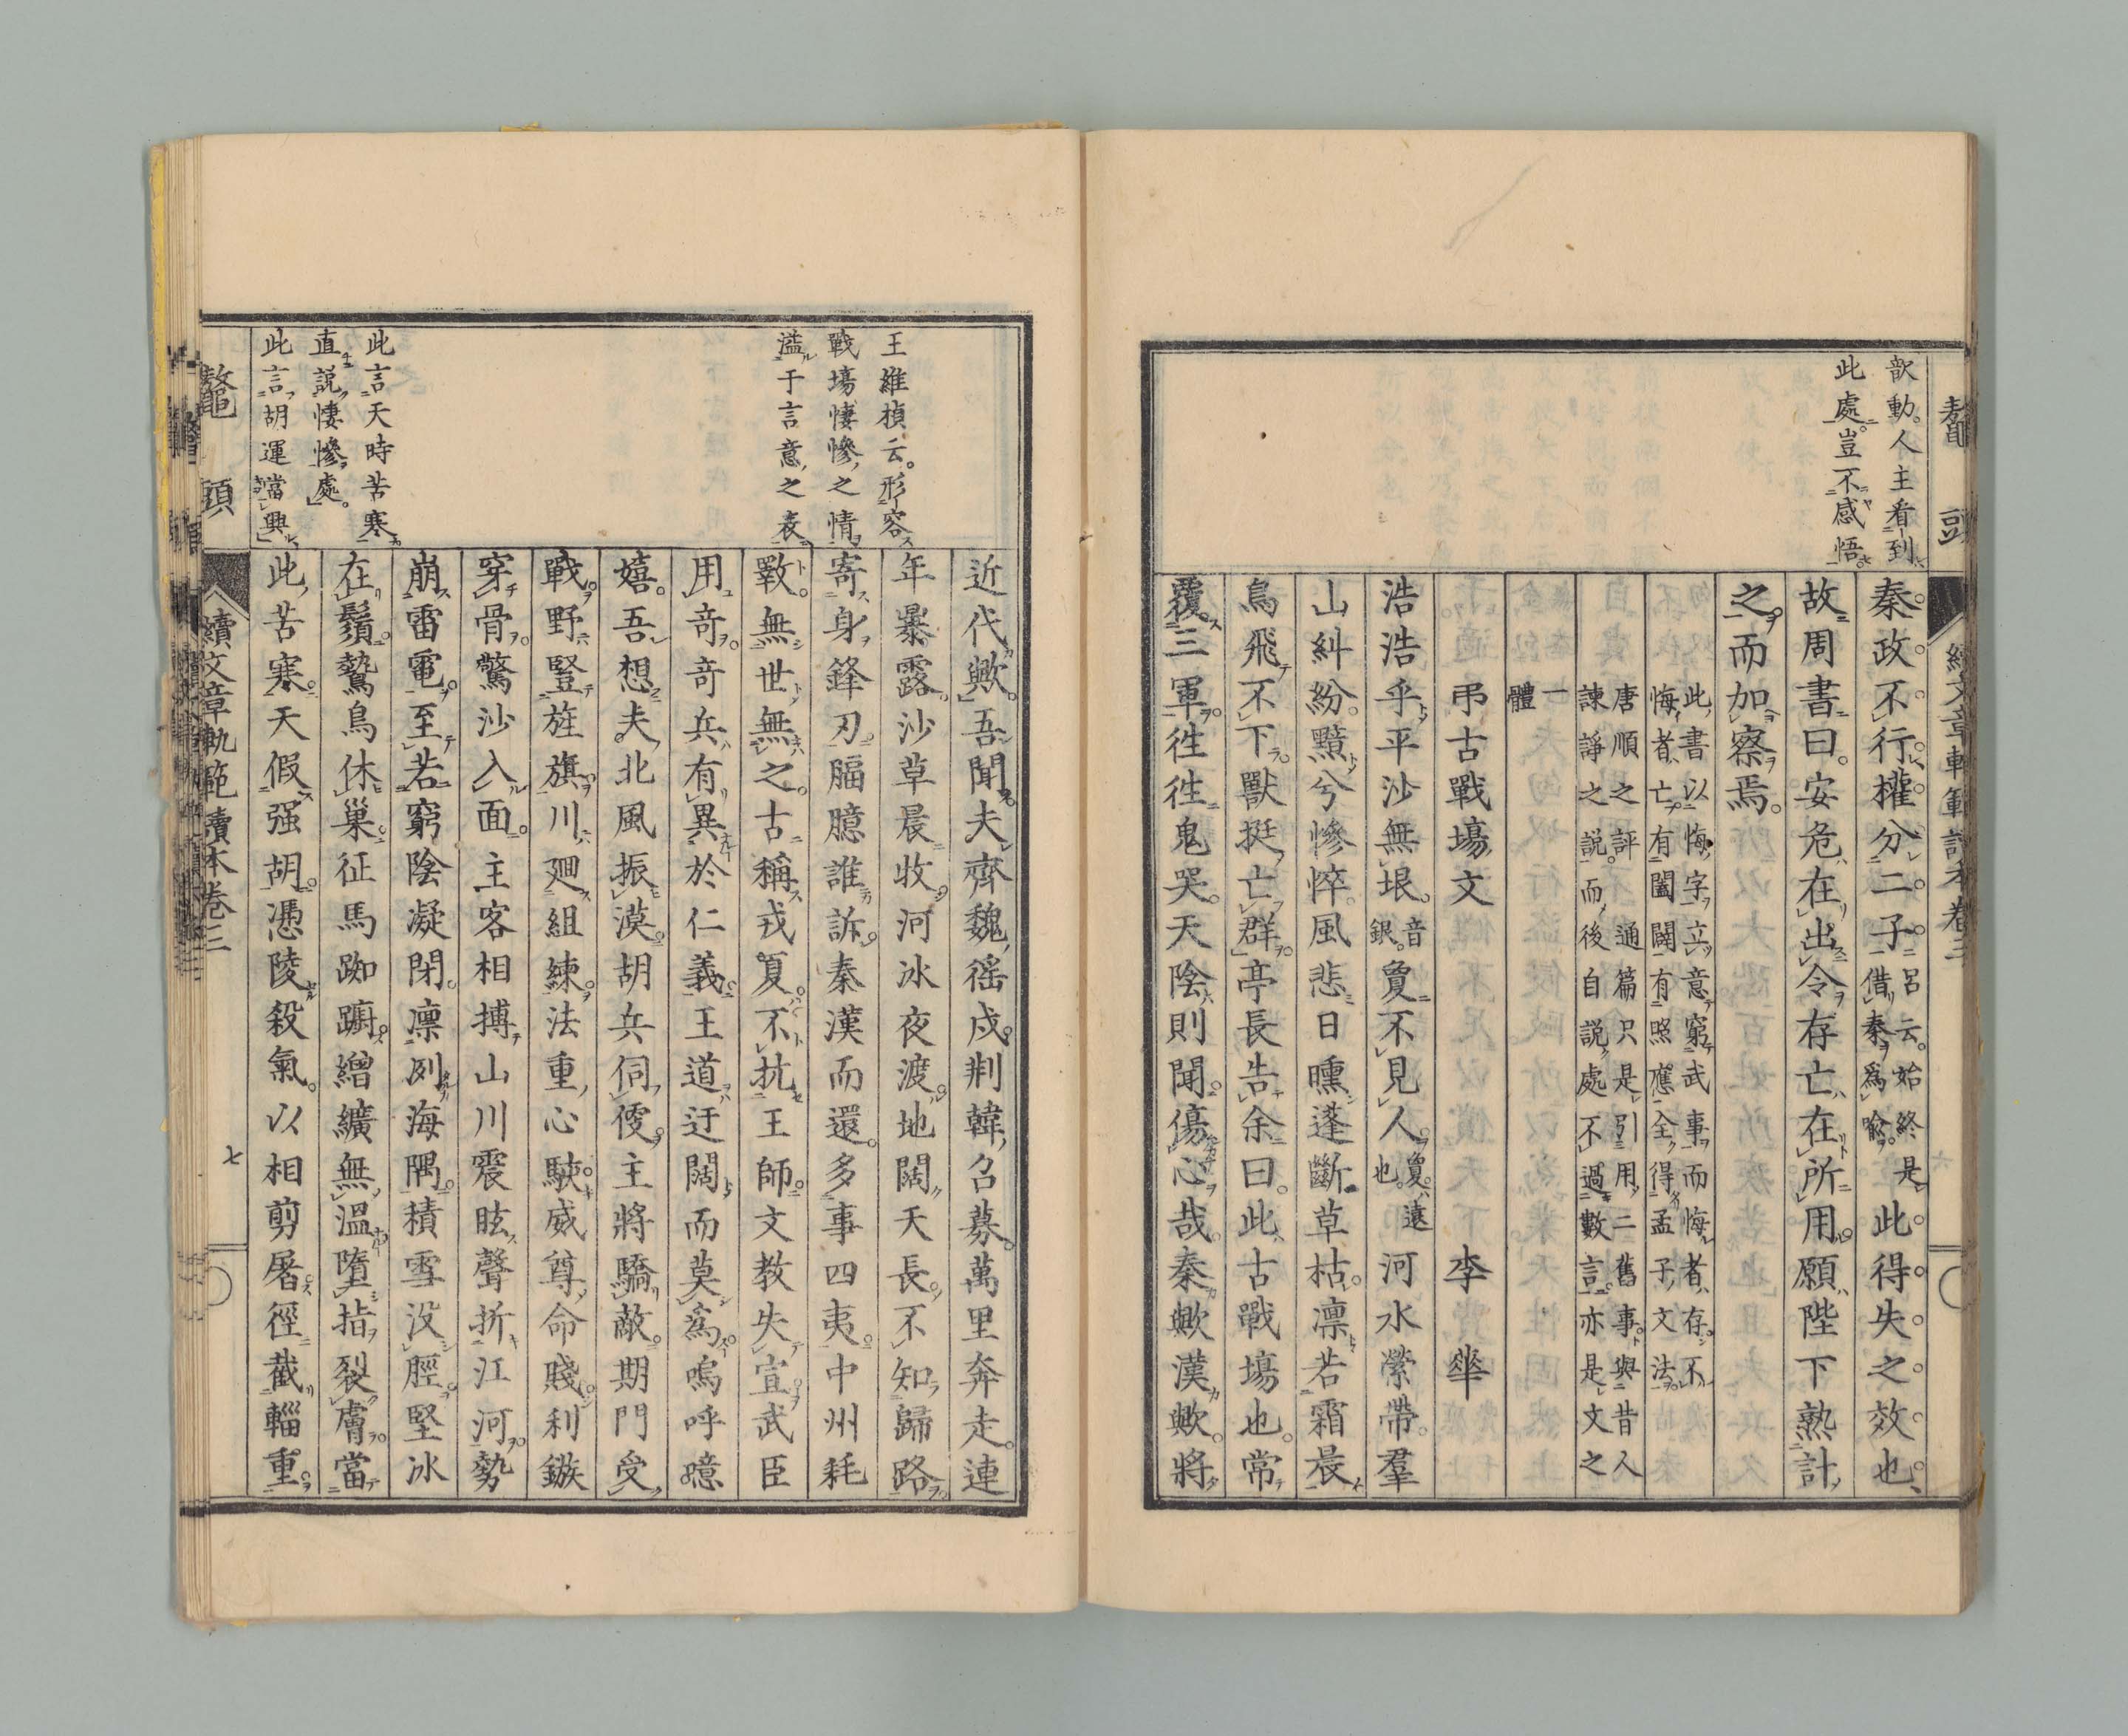 鼇頭
續文章軌範讀本卷三
歆動。人主看到
此處。豈不感悟。
秦政。不行。權分二子。呂云。始終是借秦爲喩。此得失之效也、
故周書曰。安危在出令。存亡在所用。願陛下熟計
之而加察焉。
此書以悔字立意。窮武事而悔者存。不
悔者亡。有闔闢有照應。全得孟子文法。
唐順之評。通篇只是引用二舊事。與昔人
諫諍之說。而後自說處不過數言。亦是文之
一體
弔古戰場文　李華
浩浩乎平沙無垠。音銀。敻不見人。敻遠也。河水縈帶。羣
山糾紛。黯兮慘悴。風悲日曛。蓬斷草枯。凛若霜晨。
鳥飛不下。獸挺亡群。亭長告余曰。此古戰場也。常
覆三軍。徃徃鬼哭。天陰則聞。傷心哉。秦歟漢歟。將
王維楨云。形容
戰場悽慘之情。
溢于言意之表。
近代歟。吾聞夫齊魏徭戍。荆韓召募。萬里奔走。連
年暴露。沙草晨收。河冰夜渡。地闊天長。不知歸路。
寄身鋒刃。腷臆誰訴。秦漢而還。多事四夷。中州耗
斁。無世無之。古稱戎夏。不抗王師。文教失宣。武臣
用奇。奇兵有異於仁義。王道迂闊而莫爲。嗚呼噫
嬉。吾想夫北風振漠。胡兵伺便。主將驕敵。期門受
戰。野豎旌旗。川廻組練。法重心駭。威尊命賤。利鏃
穿骨。驚沙入面。主客相搏。山川震眩。聲折江河。勢
崩雷電。至若窮陰凝閉。凛冽海隅。積雪没脛。堅冰
在鬚。鷙鳥休巢。征馬踟蹰。繒纊無溫。墮指裂膚。當
此苦寒。天假强胡。憑陵殺氣。以相剪屠。徑截輜重。
此言天時苦寒
直說悽慘處。
此言胡運當興
鼇頭
續文章軌範讀本卷三
七